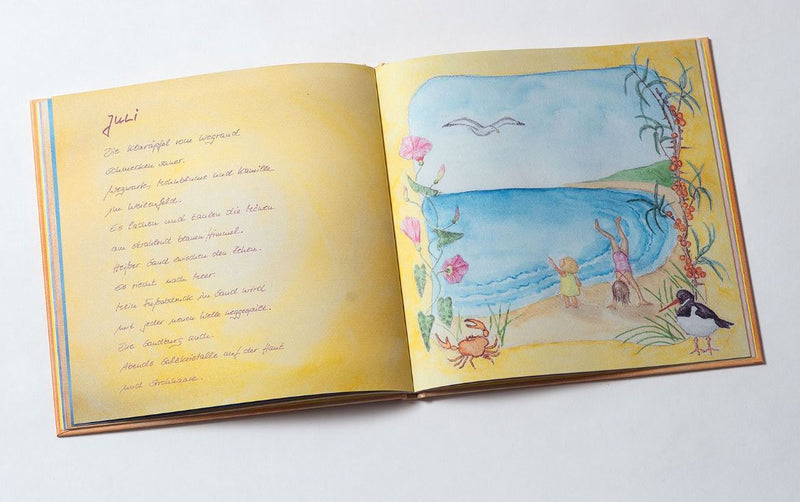 Juli
Die Klaräpfel vom Wegrand
schmecken sauer.
Wegwarte, Mohnblume und Kamille
im Weizenfeld.
Es lachen und zanken die Möwen
am strahlend blauen Himmel.
Heißer Sand zwischen den Zehen.
Es riecht nach Meer.
Mein Fußabdruck im Sand wird
mit jeder neuen Welle weggespült.
Die Sandburg auch.
Abends Salzkristalle auf der Haut
und Strohhaare.